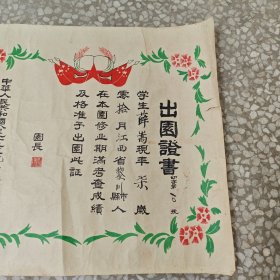 出園證書
學生薛嵩現年柒歲
零拾月江西省黎川縣人
在本園修业期滿考查成績
及格准予出園此証
園長
中華人民共和國